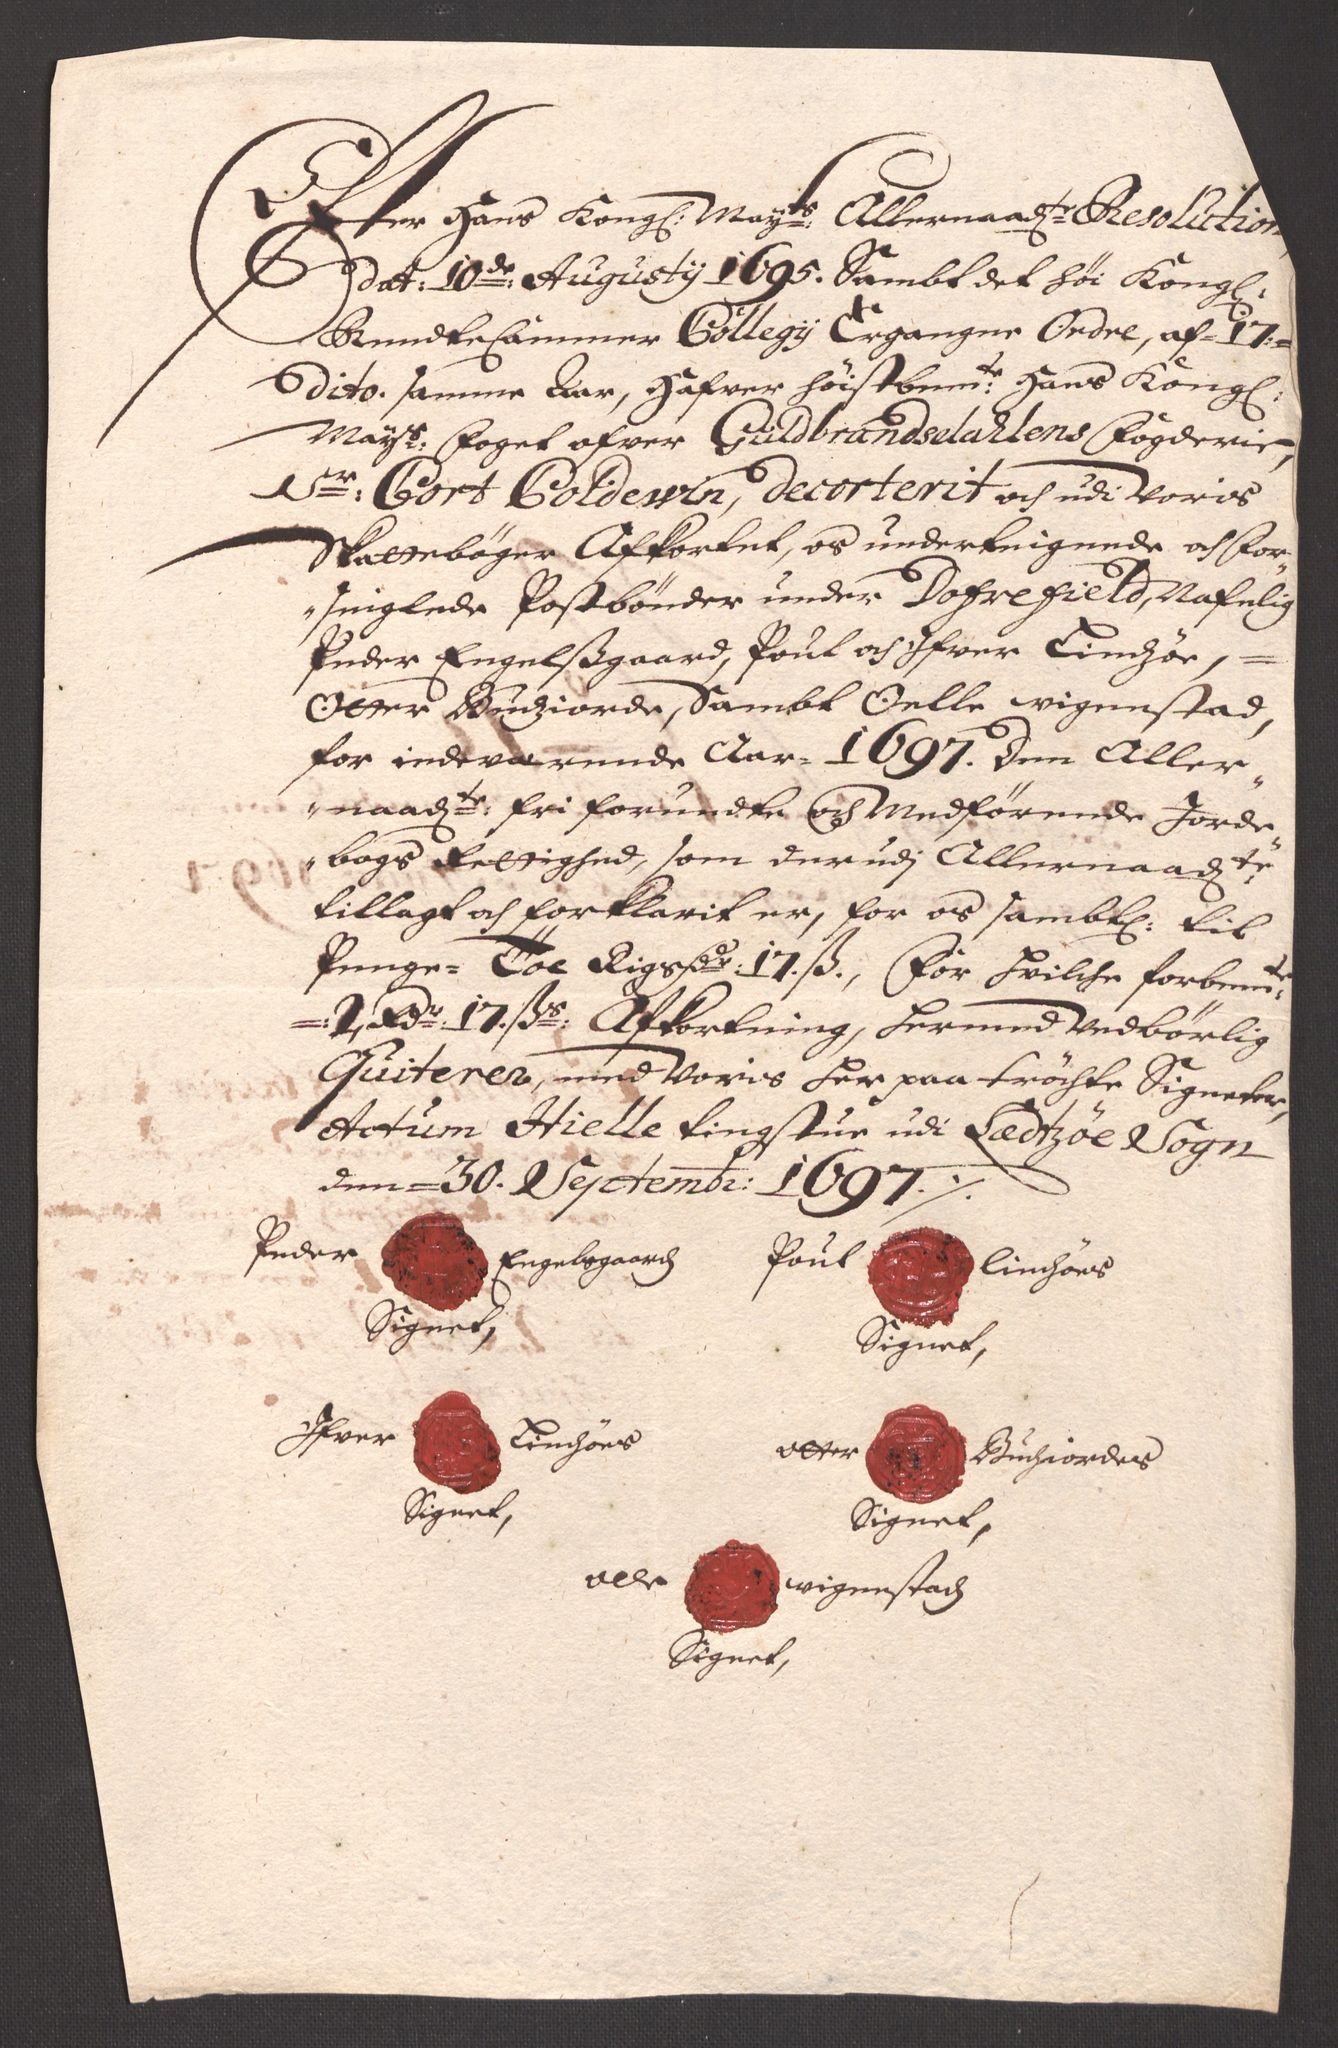 Efter Hans Kongl: Mayts: Allernaadste Resolution
dat: 10de: Augustij 1695. Sambt det höi Kongl:
RendteCammer Collegij Ergangne Ordre, af 17:=
dito. samme Aar, Hafver höistbemte: Hans Kongl:
Mayts: Foget ofver Güldbrandsdahlens Fogderie,
Sr: Cort Coldewin, decorterit och udi Voris
Skatteböger Afkortet, os underteignede och For-
"seiglede Postbönder under Dofrefield, Nafnlig
Peder Engelsgaard, Poul och Ifver Lindzöe, =
Otter Budziorde, Sambt Oelle wigenstad,
for indeværende Aar= 1697. Den Aller"
"naadste: fri forundte och Medförende Jorde"
"bogs Rettighed, som derudj Allernaadste
tillagt och forklarit er, for os sambtl: til
Penge= Toe Rigsdr: 17. ß., For hvilche forbemte:
=: 2, Rdr: 17. ßs: Afkortning, hermed vedbörlig
Quiterer, med Voris her paa tröchte Signeter,
Actum Hielle tingstue udi Lædtzöe Sogn
den= 30. Septembr: 1697 ./.
Peder Engelsgaards Poul Lindzöes
Signet, Signet,
Ifver Lindzöes otter Budziordes
Signet, Signet,
olle wigenstads
Signet,